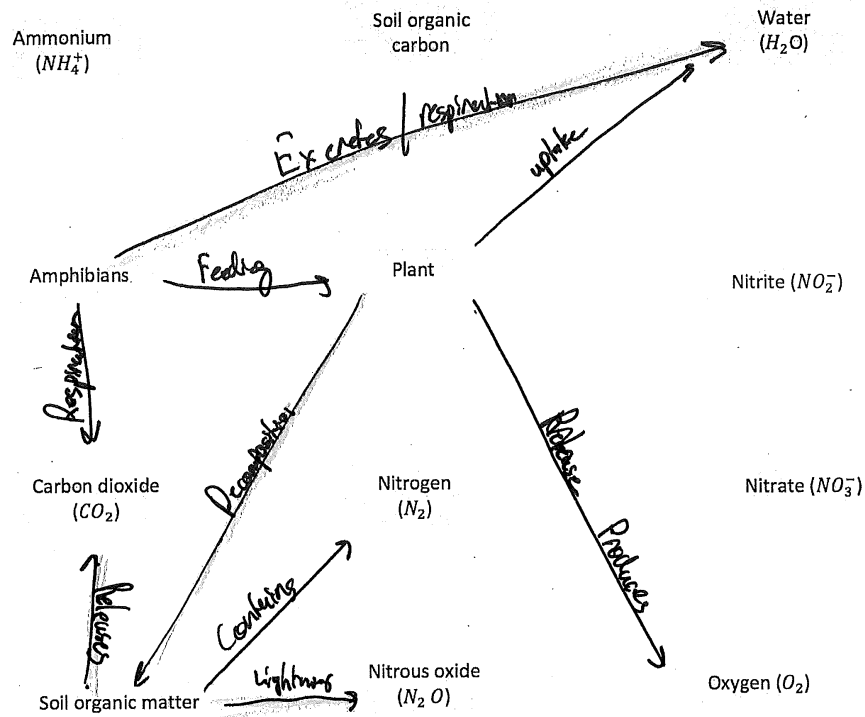 Ammonium
(NH₄⁺)
Soil organic
carbon
Water
(H₂O)
Excretes | respiration
uptake
Amphibians
Feeding
Plant
Nitrite (NO₂⁻)
Respiration
Decomposition
Release
Carbon dioxide
(CO₂)
Nitrogen
(N₂)
Nitrate (NO₃⁻)
Produces
Releases
Contuins
Lightning
Soil organic matter
Nitrous oxide
(N₂ O)
Oxygen (O₂)